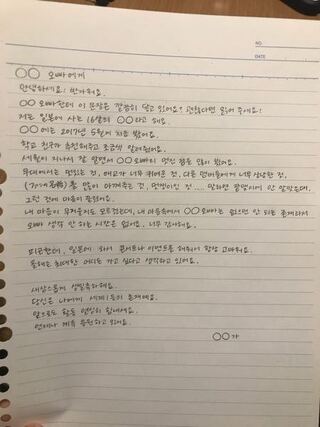 NO.
DATE
○○ 오빠에게
안녕하세요! 반가워요.
○○ 오빠한테 이 문장은 잘 닿고 있어요? 괜찮다면 읽어 주세요!
저는 일본에 사는 16살의 ○○라고 해요.
○○에는 2017년 5월에 처음 봤어요.
학교 친구가 추천해주고 조금씩 알려줬어요.
세월이 지나서 잘 알면서 ○○오빠의 멋진 점은 많이 봤어요.
무대에서는 멋있는 것, 애교가 너무 귀여운 것, 다른 멤버들에게 너무 상냥한 것,
를 많이 아껴주는 것, 멋쟁이인 것.... 말하면 끝없이 안 말랐는데,
그런 것에 마음이 끌렸어요.
내 마음이 무거울지도 모르겠는데, 내 마음속에서 ○○오빠는 없으면 안 되는 존재라서
오빠 생각 안 하는 시간은 없어요. 너무 좋아해요.
피곤한데, 일본에 와서 콘서트나 이벤트를 해줘서 항상 고마워요.
올해는 최대한 어디든 가고 싶다고 생각하고 있어요.
새삼스럽게 생일축하해요.
당신은 나에게 세계1등의 존재예요.
앞으로도 활동 열심히 힘내세요.
언제나 계속 응원하고 있어요.
○○ 가